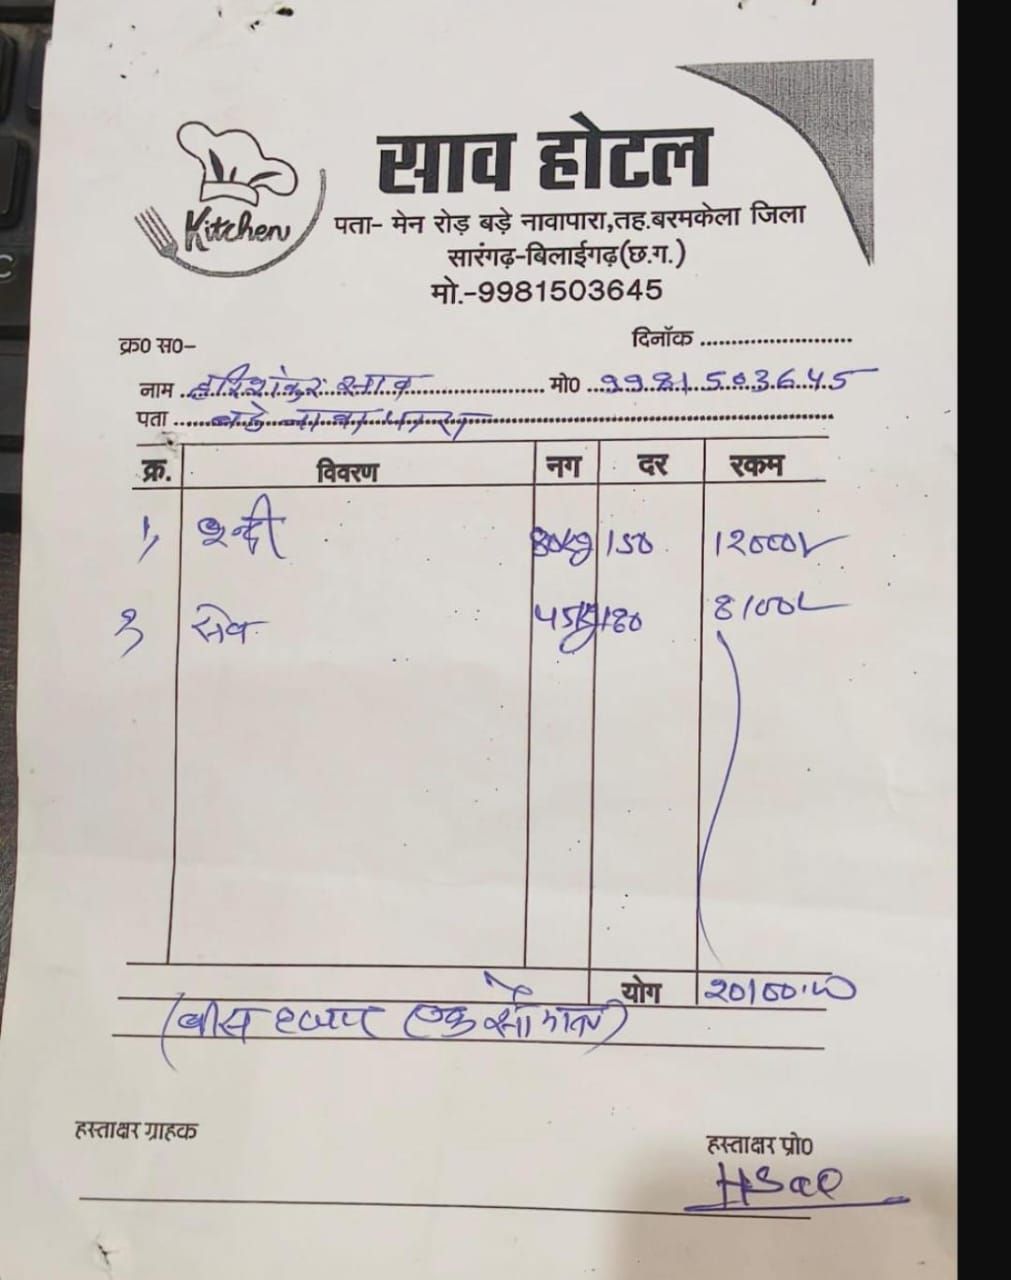 साव होटल
Kitchen
पता- मेन रोड़ बड़े नावापारा,तह.बरमकेला जिला
सारंगढ़-बिलाईगढ़(छ.ग.)
मो.-9981503645
क्र0 स0-
दिनॉक
नाम हरिशंकर साव मो0 9981503645
पता बड़े नावापारा
क्र. विवरण नग दर रकम
1, बुन्दी 80kg 150 12000/-
2, सेव 45kg 180 8100/-
योग 20100.00
(बीस हजार एक सौ मात्र)
हस्ताक्षर ग्राहक
हस्ताक्षर प्रो0
HSao